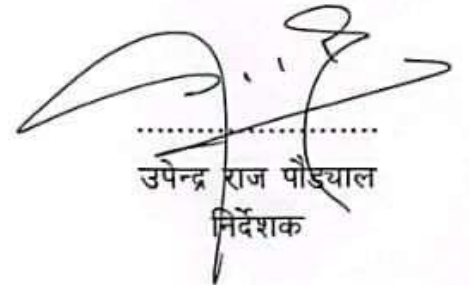 ....................
उपेन्द्र राज पौड्याल
निर्देशक